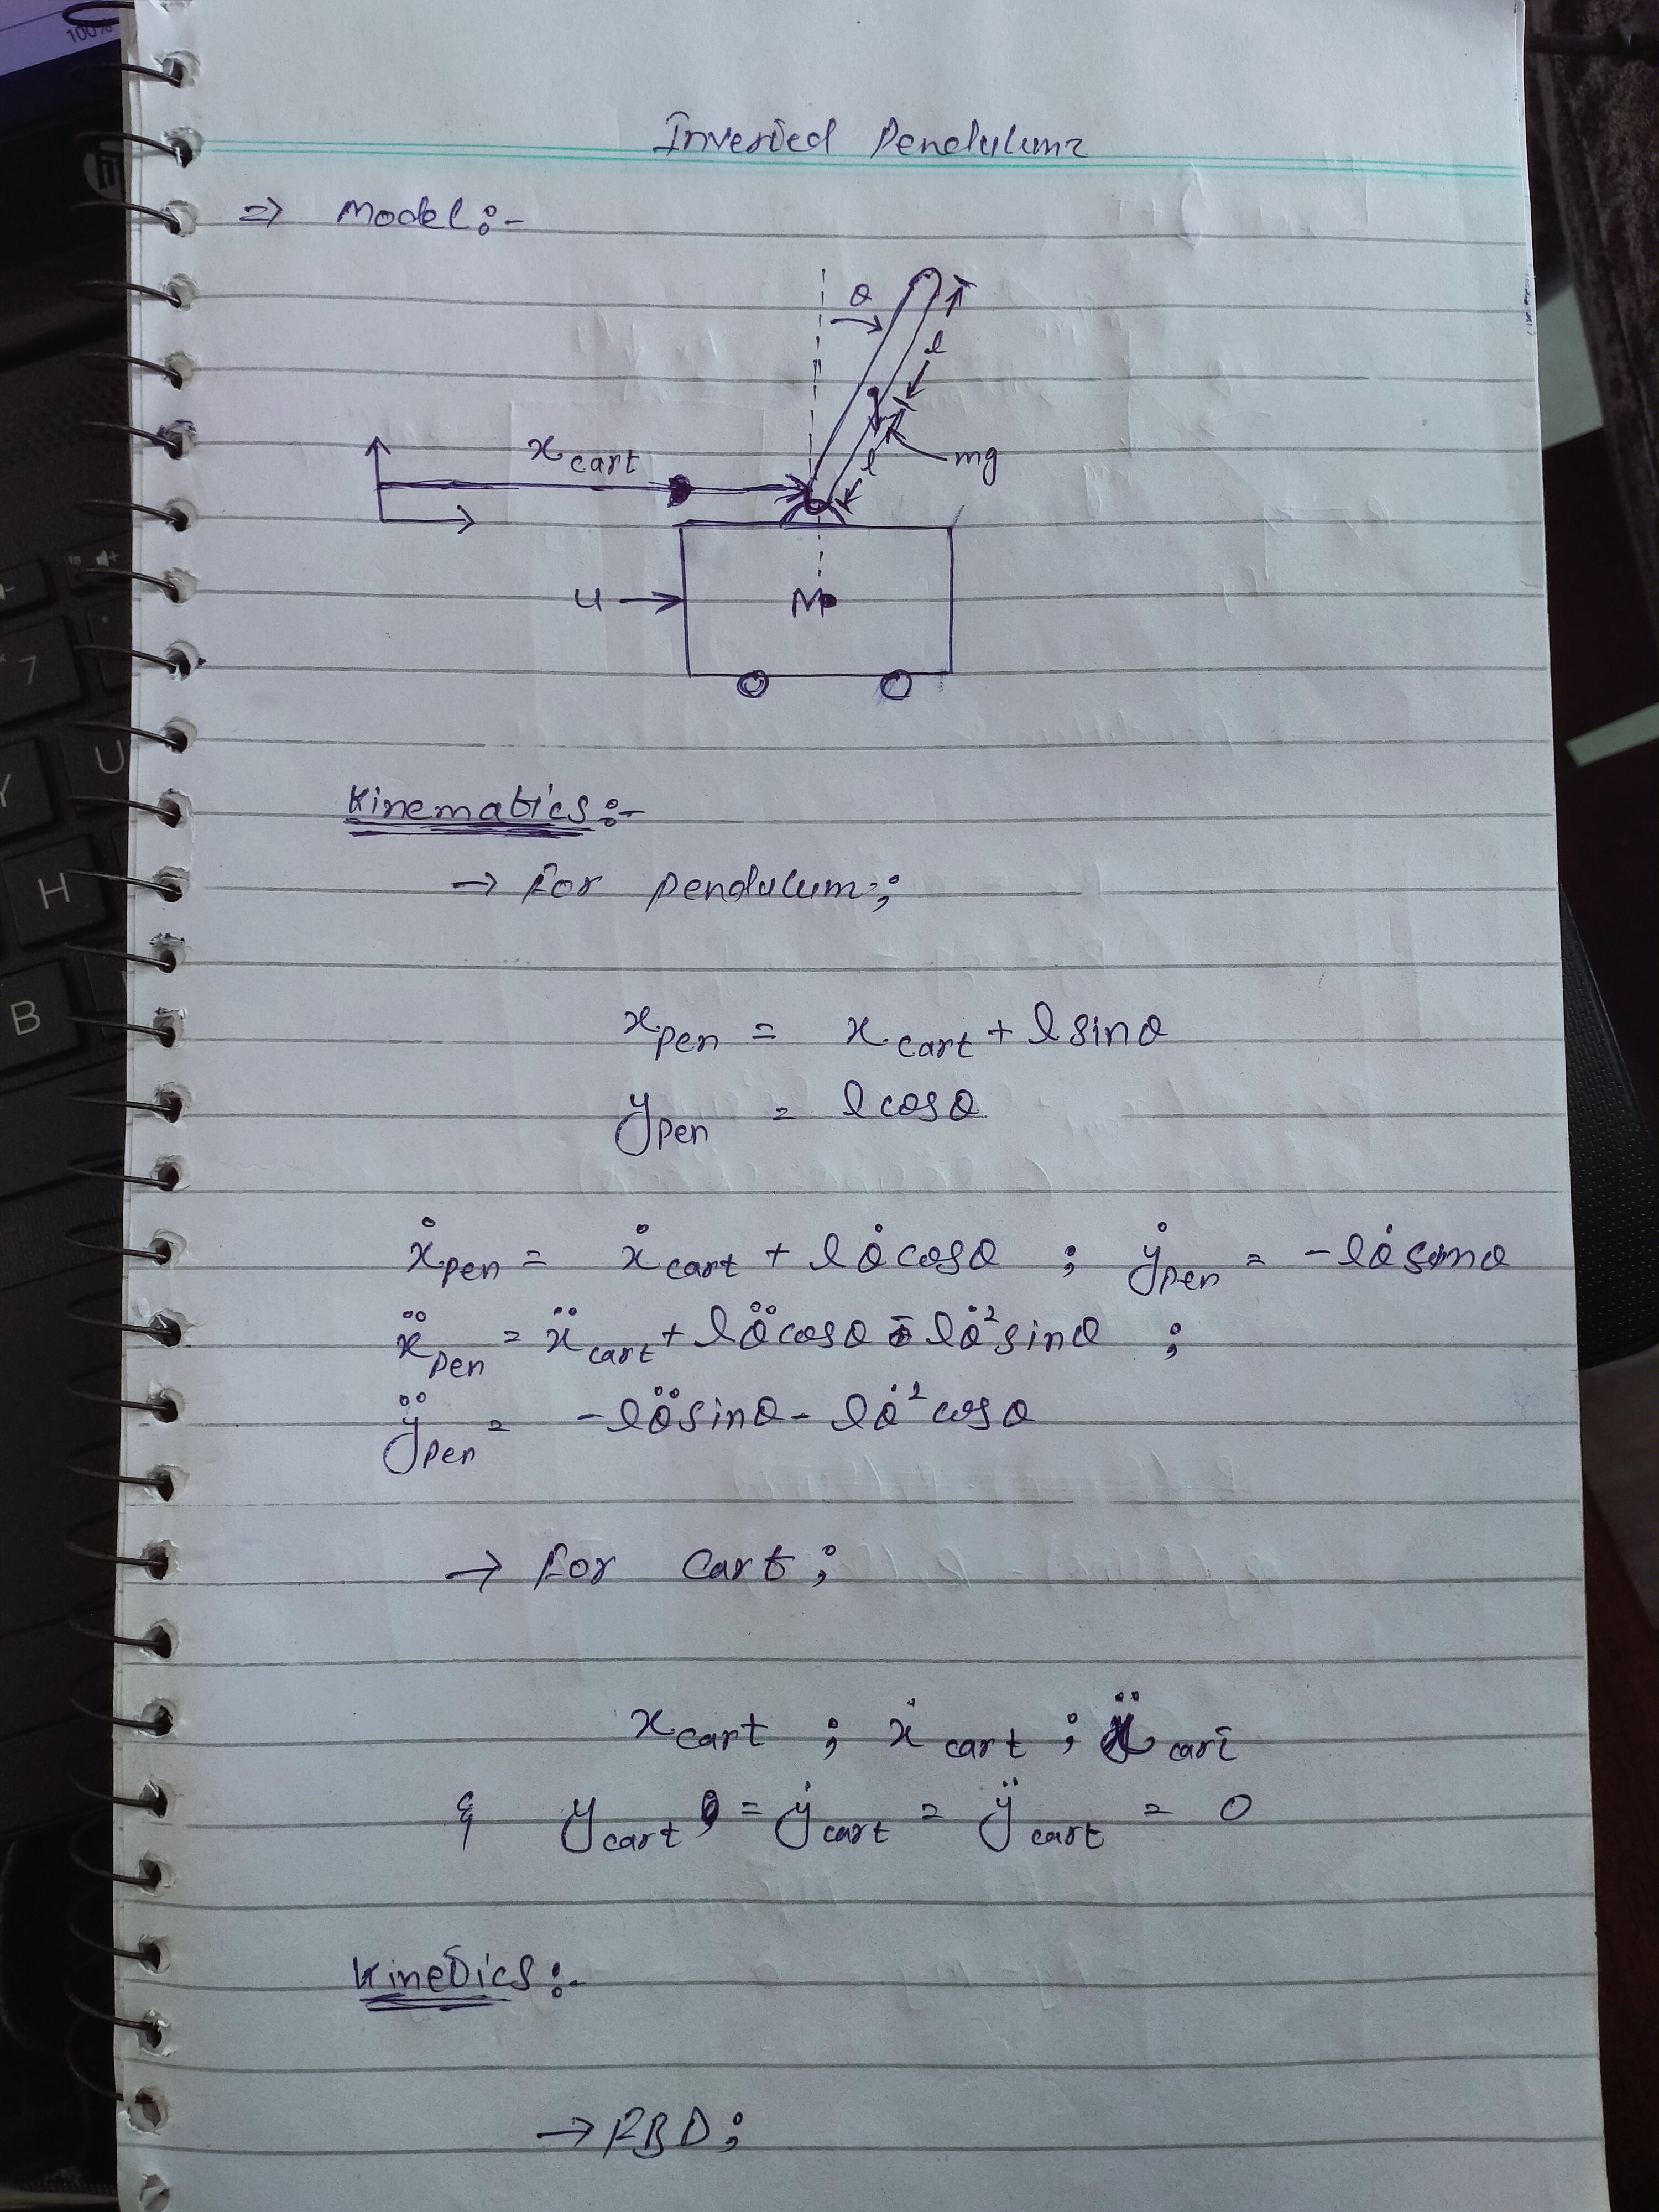 100%
Inverted Pendulum
=> Model :-
θ
l
x cart
mg
l
u → M
Kinematics :-
→ For pendulum ;
x pen = x cart + l sinθ
y pen = l cosθ
ẋ pen = ẋ cart + l θ̇ cosθ ; ẏ pen = - l θ̇ sinθ
ẍ pen = ẍ cart + l θ̈ cosθ - l θ̇² sinθ ;
ÿ pen = - l θ̈ sinθ - l θ̇² cosθ
→ For Cart ;
x cart ; ẋ cart ; ẍ cart
& y cart = ẏ cart = ÿ cart = 0
Kinetics :-
→ FBD ;
7
U
Y
H
B